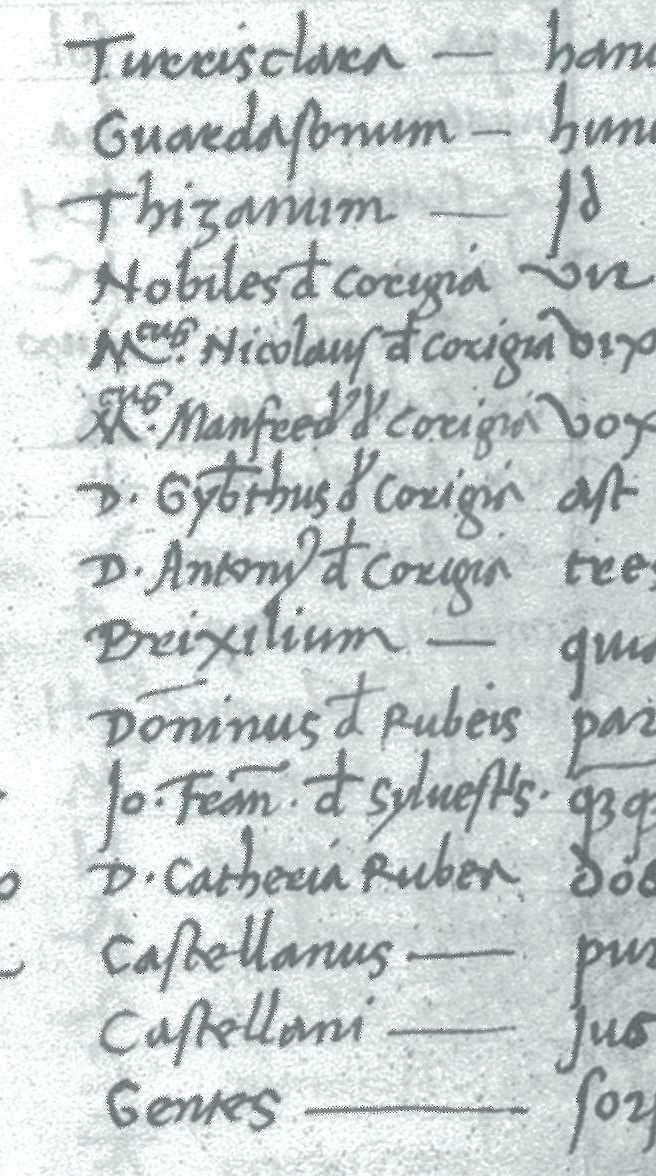 Turrisclara — hanc
Guardasonum — hunc
Thizanum — Id
Nobiles d Corigia vir
M.cus Nicolaus d Corigia vix
M.cus Manfred' d' Corigia vox
D. Gybthus d' Corigia ast
D. Antoni' d Corigia tres
Brixilium — qui
Dominus d Rubeis par
Jo. Fran. d Sylvestris.
D. Catheria Rubea
Castellanus —
Castellani —
Gentes —